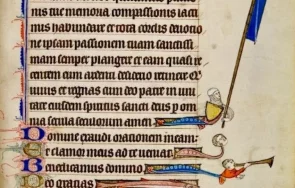 tue memoria compassionis lacri
mis habundare et tota cordis devotio
ne ipsam passionem tuam sanctissi
mam semper plangere et eam quasi re
centem cum ardenti desiderio retinere Qui
vivis et regnas cum deo patre in uni
tate eiusdem spiritus sancti deus p om
nia secula seculorum amen
Domine exaudi orationem meam
Et clamor meus ad te veniat
Benedicamus domino
Deo gracias